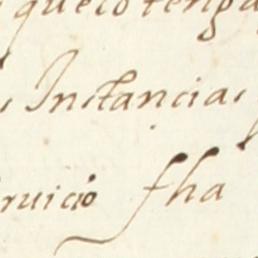 que lo tenga
Instancia,
ruicio fha